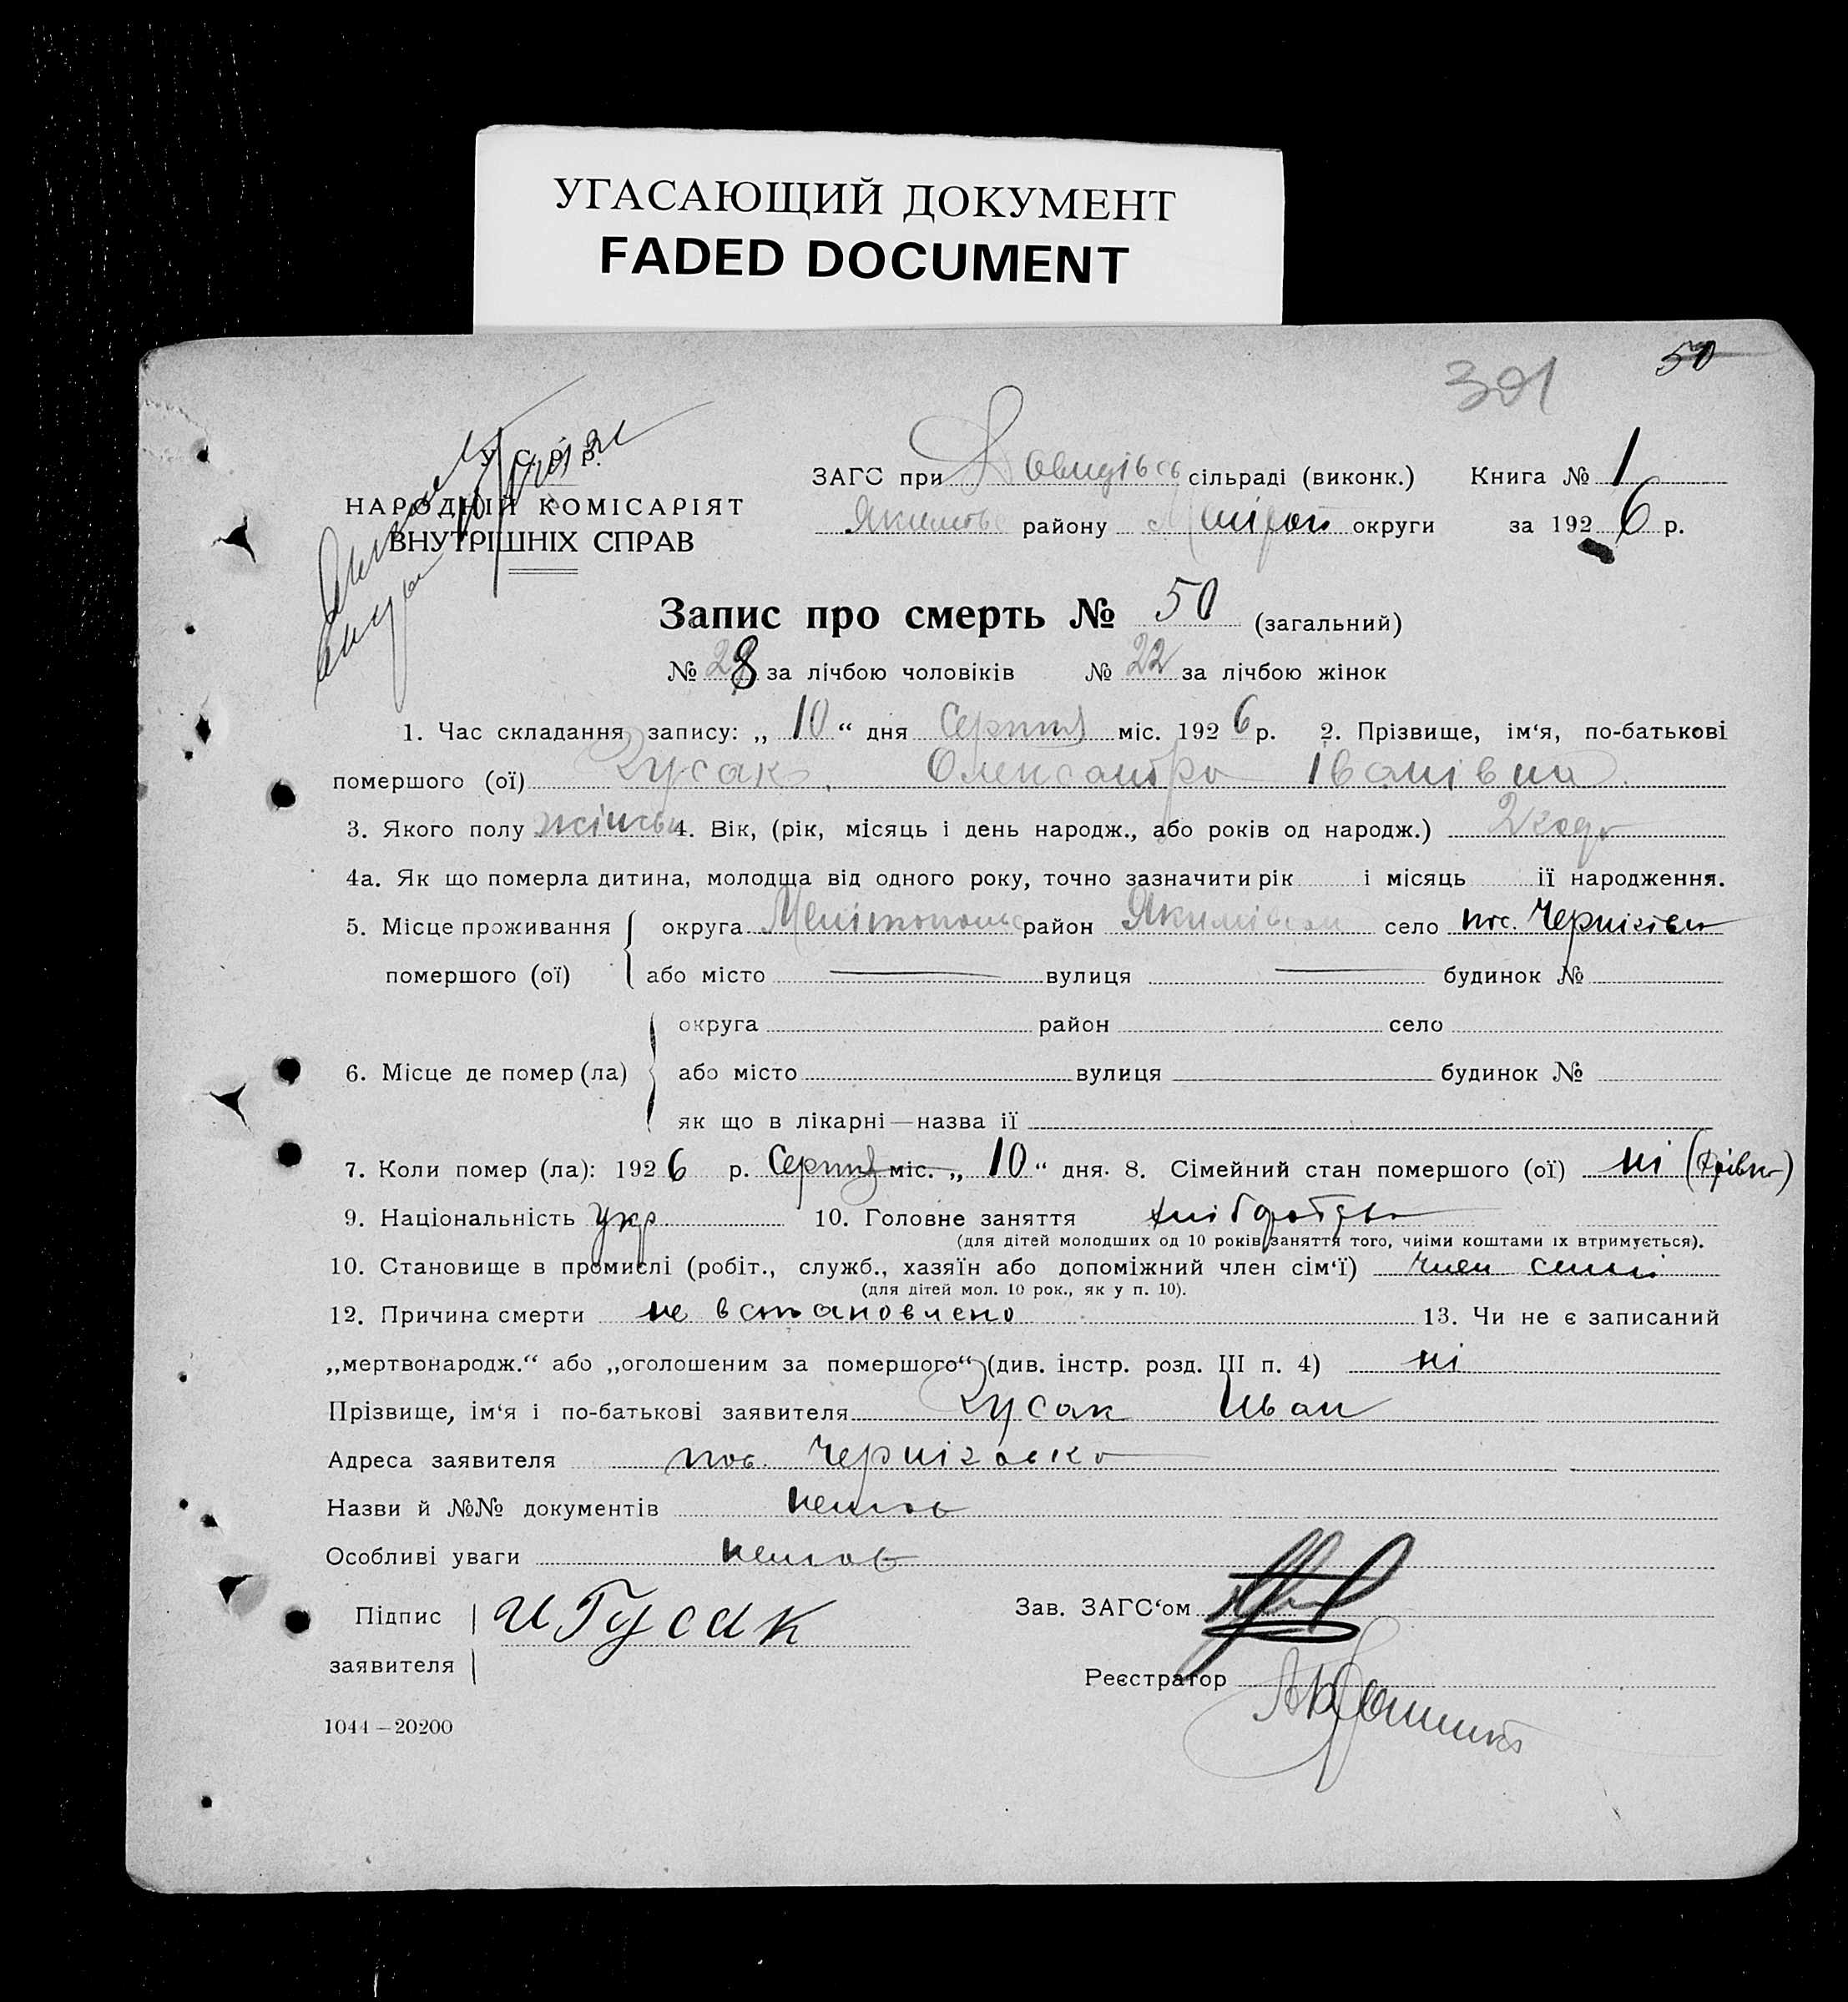 УГАСАЮЩИЙ ДОКУМЕНТ
FADED DOCUMENT
50
301
У. С. Р. Р.
НАРОДНІЙ КОМІСАРІЯТ
ВНУТРІШНІХ СПРАВ
ЗАГС при Давидівсь сільраді (виконк.) Книга № 1
району округи за 1926 р.
Запис про смерть № 50 (загальний)
№ 28 за лічбою чоловіків № 22 за лічбою жінок
1. Час складання запису: „ 10 “ дня Серпня міс. 1926 р. 2. Прізвище, ім‘я, по-батькові
помершого (ої) Гусак, Олександра Іванівна.
3. Якого полу жіночь 4. Вік, (рік, місяць і день народж., або років од народж.) 2 года
4а. Як що померла дитина, молодща від одного року, точно зазначити рік і місяць ії народження.
5. Місце проживання округа Мелітопольс район Якимівськ село пос. Чернігівка
помершого (ої) або місто вулиця будинок №
округа район село
6. Місце де помер (ла) або місто вулиця будинок №
як що в лікарні — назва ії
7. Коли помер (ла): 1926 р. Серпня міс. „ 10 “ дня. 8. Сімейний стан помершого (ої) ні
9. Національність укр 10. Головне заняття хліборобство
(для дітей молодших од 10 років заняття того, чиїми коштами їх втримується).
10. Становище в промислі (робіт., служб., хазяїн або допоміжний член сім‘ї) член семьї
(для дітей мол. 10 рок., як у п. 10).
12. Причина смерти не встановлено 13. Чи не є записаний
„мертвонародж.“ або „оголошеним за помершого“ (див. інстр. розд. III п. 4) ні
Прізвище, ім‘я і по-батькові заявителя Гусак Иван
Адреса заявителя пос. Черніговка
Назви й №№ документів немає
Особливі уваги немає
Підпис И Гусак Зав. ЗАГС‘ом
заявителя
Реєстратор
1044—20200